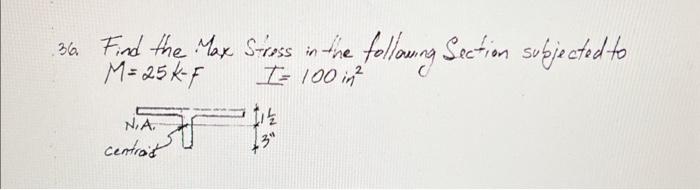 36. Find the Max Stress in the following Section subjected to
M=25 K-F I= 100 in²
N.A. 1½
centroid 3"